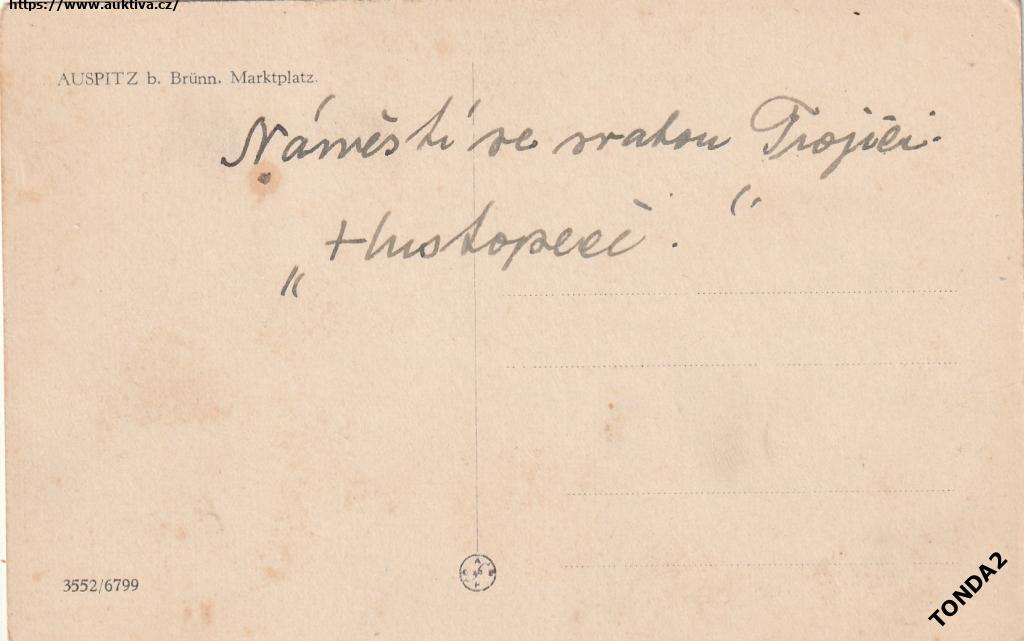 https://www.auktiva.cz/
AUSPITZ b. Brünn. Marktplatz.
Náměstí se svatou Trojicí.
„Hustopeče."
3552/6799
TONDA2